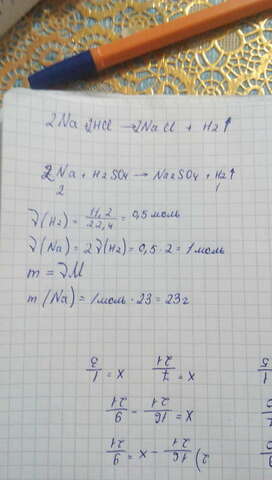 2Na + 2HCl → 2NaCl + H2↑
2Na + H2SO4 → Na2SO4 + H2↑
2 1
ν(H2) = 11,2/22,4 = 0,5 моль
ν(Na) = 2ν(H2) = 0,5 · 2 = 1 моль
m = νM
m(Na) = 1 моль · 23 = 23 г
2) 16/21 - x = 9/21
x = 16/21 - 9/21
x = 7/21 x = 1/3